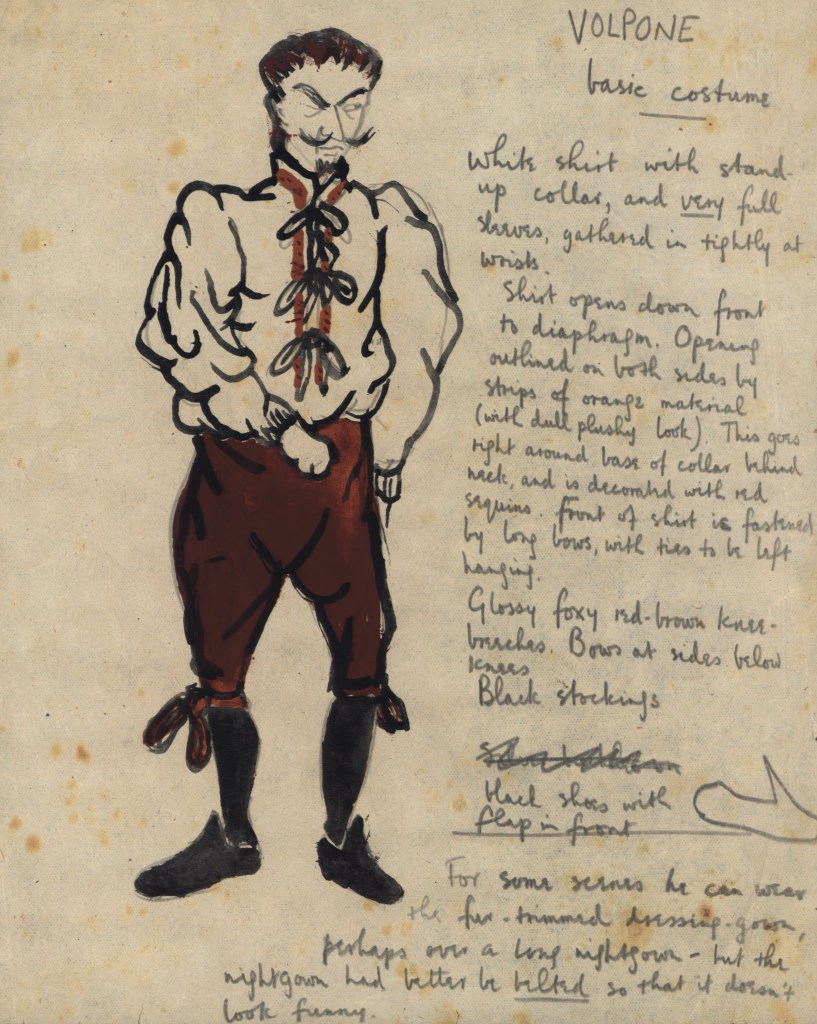 VOLPONE
basic costume
White shirt with stand-
up collar, and very full
sleeves, gathered in tightly at
wrists.
Shirt opens down front
to diaphragm. Opening
outlined on both sides by
strips of orange material
(with dull plushy look). This goes
right around base of collar behind
neck, and is decorated with red
sequins. Front of shirt is fastened
by long bows, with ties to be left
hanging.
Glossy foxy red-brown knee-
breeches. Bows at sides below
knees
Black stockings
black shoes with
flap in front
For some scenes he can wear
the fur-trimmed dressing-gown,
perhaps over a long nightgown - but the
nightgown had better be belted so that it doesn't
look funny.